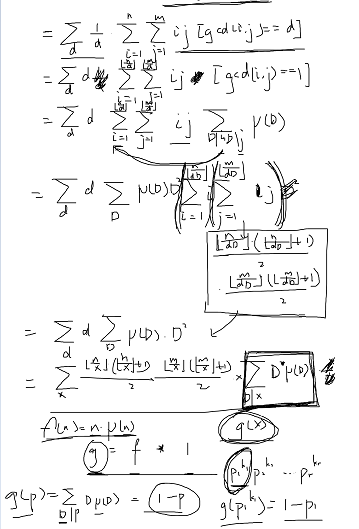 = ∑_d 1/d · ∑_{i=1}^{n} ∑_{j=1}^{m} ij [gcd(i,j)==d]
= ∑_d d ∑_{i=1}^{⌊n/d⌋} ∑_{j=1}^{⌊m/d⌋} ij [gcd(i,j)==1]
= ∑_d d ∑_{i=1}^{⌊n/d⌋} ∑_{j=1}^{⌊m/d⌋} ij ∑ μ(D)
= ∑_d d ∑_D μ(D) D² (∑_{i=1}^{⌊n/dD⌋} i) (∑_{j=1}^{⌊m/dD⌋} j)
⌊n/dD⌋ · (⌊n/dD⌋+1) / 2
· ⌊m/dD⌋ (⌊m/dD⌋+1) / 2
= ∑_d d ∑_D μ(D) · D²
= ∑_x ⌊n/x⌋(⌊n/x⌋+1)/2 ⌊m/x⌋(⌊m/x⌋+1)/2 x ∑_{D|x} D·μ(D)
f(n)=n·μ(n) g(x)
g = f * 1 p₁^{k₁} p₂^{k₂} ... p_r^{k_r}
g(p) = ∑_{D|p} Dμ(D) = 1-p g(p₁^{k₁}) = 1-p₁